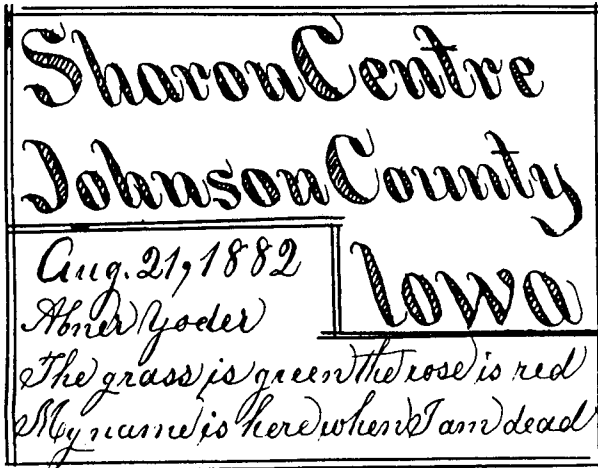 Sharon Centre
Johnson County
Iowa
Aug. 21, 1882
Abner Yoder
The grass is green the rose is red
My name is here when I am dead